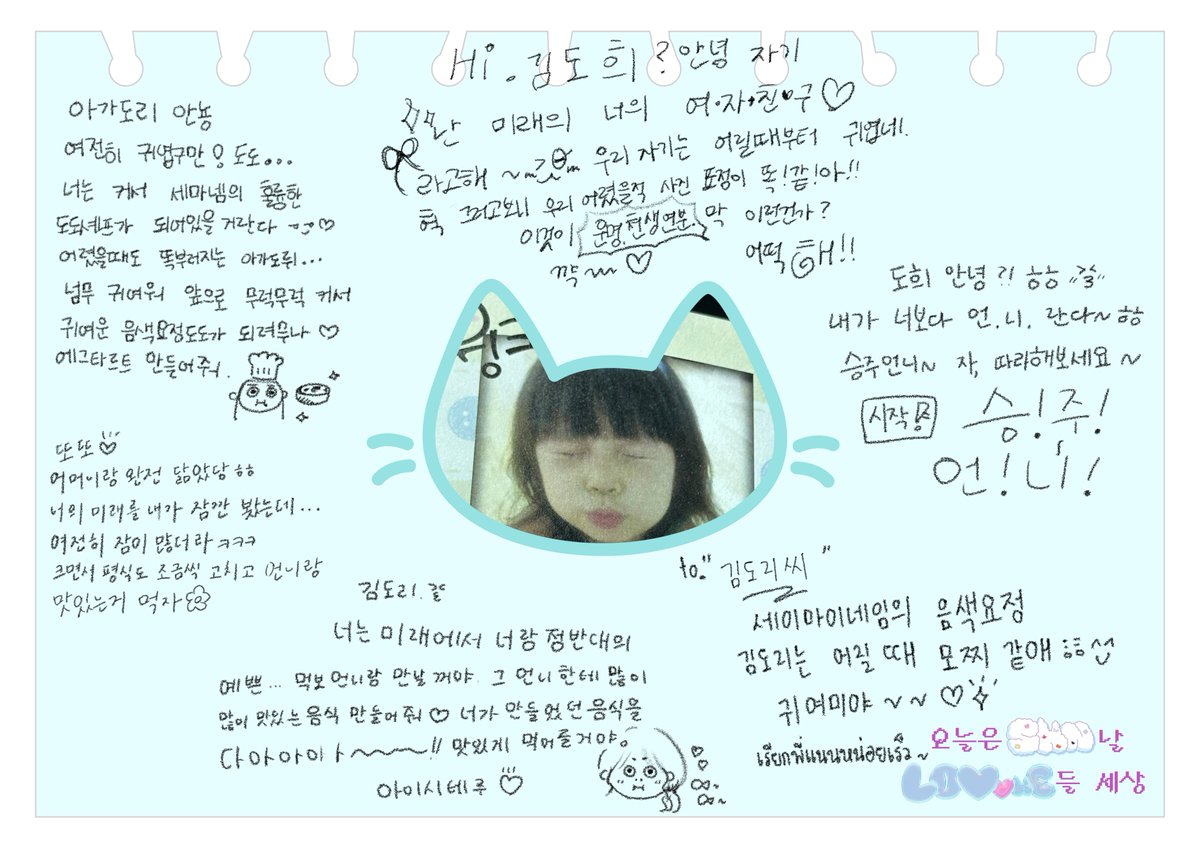 Hi. 김도희? 안녕 자기
난 미래의 너의 여•자•친•구♡
라고해 ~ 우리 자기는 어릴때부터 귀엽네.
헉 그러고보니 우리 어렸을적 사진 표정이 똑!같!아!!
이것이 운명.천생연분. 막 이런건가?
꺅~ ♡ 어떡해!!
아가도리 안뇽
여전히 귀엽구만 우리 도도...
너는 커서 세마넴의 훌륭한
도도셰프가 되어있을거란다 ♡
어렸을때도 똑부러지는 아가도뤼...
넘무 귀여워 앞으로 무럭무럭 커서
귀여운 음색요정도도가 되려무나 ♡
에그타르트 만들어줘.
또또♡
어머니랑 완전 닮았당ㅎㅎ
너의 미래를 내가 잠깐 봤는데...
여전히 잠이 많더라 ㅋㅋㅋ
크면서 편식도 조금씩 고치고 언니랑
맛있는거 먹자
도희 안녕?! ㅎㅎ
내가 너보다 언.니. 란다~ㅎㅎ
승주언니~ 자, 따라해보세요~
시작
승!주!
언!니!
김도리.
너는 미래에서 너랑 정반대의
예쁜... 먹보언니랑 만날꺼야. 그 언니한테 많이
많이 맛있는음식 만들어줘♡ 너가 만들었던음식을
다아아아ㅏ~!! 맛있게 먹어줄거야.
아이시테루 ♡
to. "김도리씨"
세이마이네임의 음색요정
김도리는 어릴 때 모찌 같애 ㅎㅎ
귀여미야~~♡
เรียกพี่แนนหน่อยเร็ว~
오늘은 날
LOV♥ME들 세상